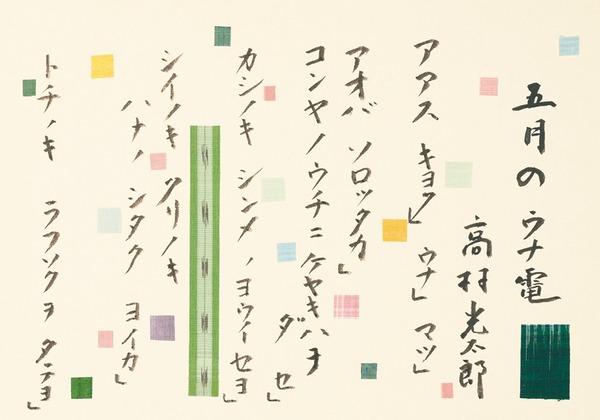 五月の ウナ電
高村光太郎
アアス キヨク」 ウナ」 マツ」
アオバ ソロッタカ」
コンヤノウチニ ケヤキハヲ
ダ セ」
カシノキ シンメノヨウイセヨ」
シイノキ クリノキ
ハナノ シタク ヨイカ」
トチノキ ラフソクヲ タテヨ」